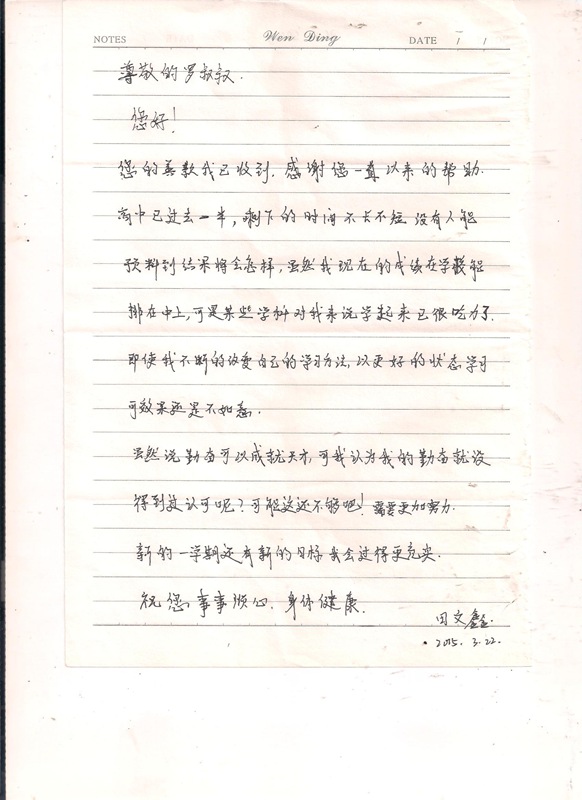 NOTES Wen Ding DATE / /
尊敬的罗叔叔.
您好!
您的善款我已收到. 感谢您一直以来的帮助.
高中已过去一半, 剩下的时间不长不短 没有人能
预料到结果将会怎样, 虽然我现在的成绩在学校能
排在中上, 可是某些学科对我来说学起来已很吃力了.
即使我不断的改变自己的学习方法, 以更好的状态学习
可效果还是不如意.
虽然说勤奋可以成就天才, 可我认为我的勤奋就没
得到认可呢? 可能这还不够吧! 需要更加努力.
新的一学期还有新的目标 我会过得更充实.
祝您 事事顺心. 身体健康.
田文鑫.
2015. 3.22.